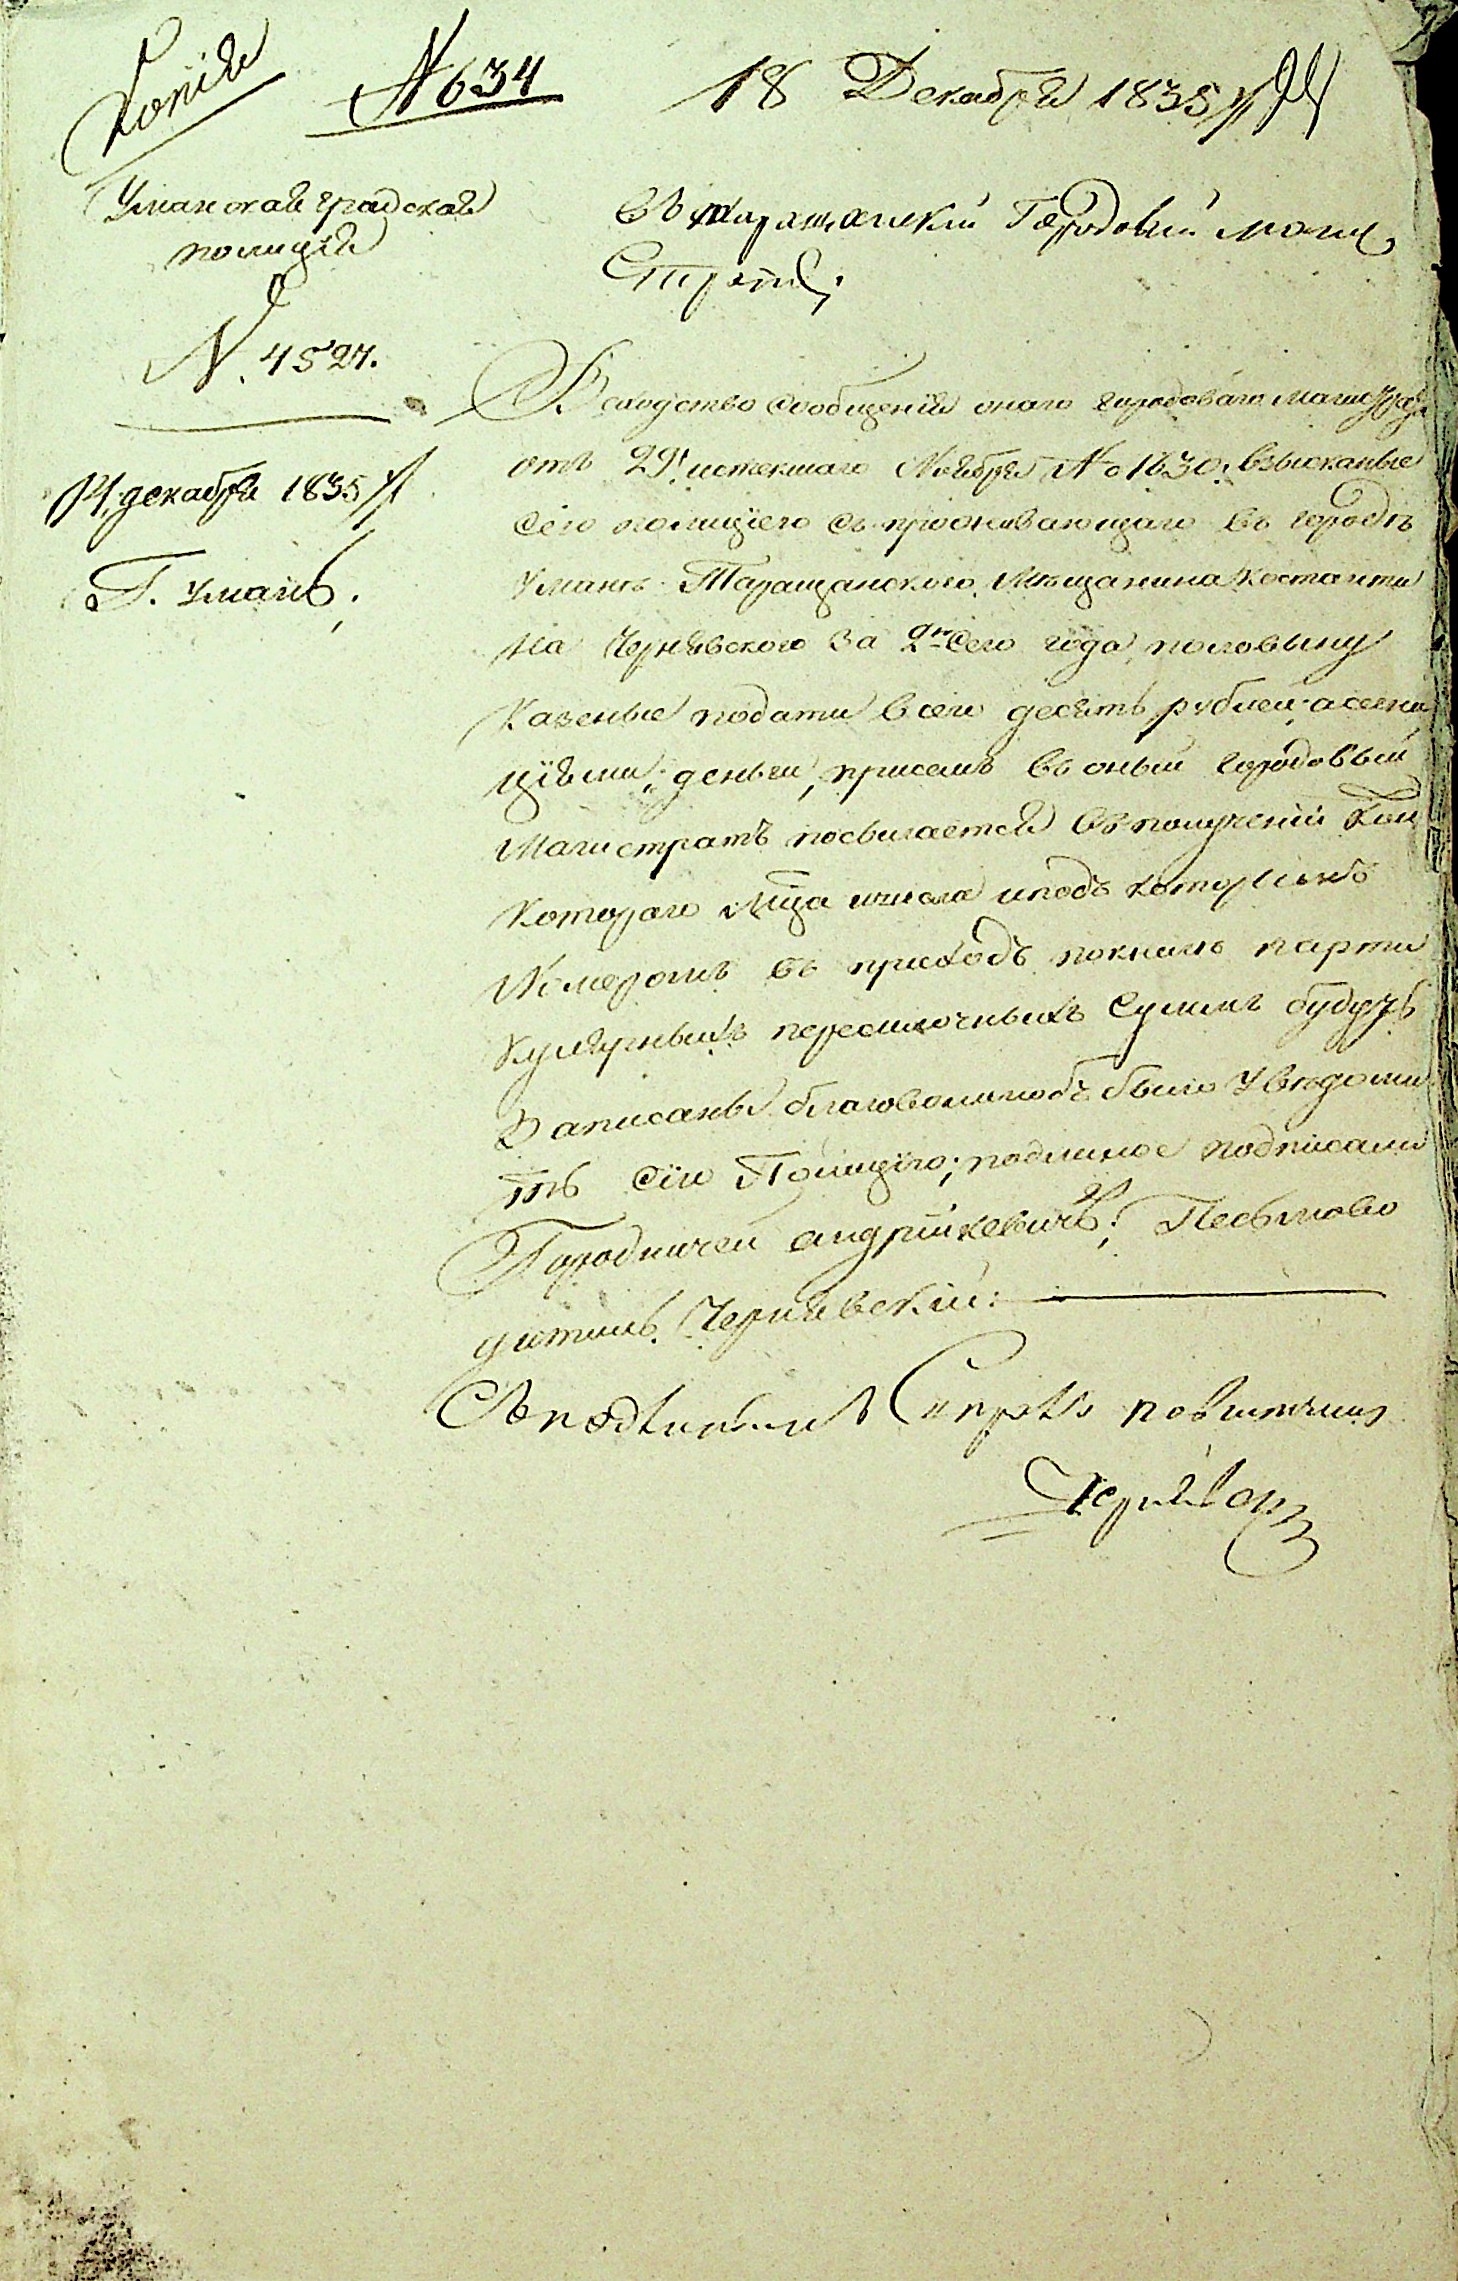 Копія
№ 634
18 Декабря 1835
Уманская градская
полиція
N. 4527.
14 декабря 1835
Г. Умань,
Въ таращанскій Городовый маги
Стратъ;
Всходство сообщенія онаго городоваго магистрата
отъ 29 истекшаго Ноября №о 1630. взысканые
сею полициею съ проживающаго въ городъ
Умань Таращанского Мещанина Костанти
на Чернявского за 2ю сего года половыну
Казеные подати всего десять рублей асегна
ціями, деньги, присемъ въ оный городовый
Магистратъ посылается вполученіи коихъ
котораго мца ичисла иподъ которымъ
Номеромъ въ приходъ покниге парти
кулярныхъ пересилочныхъ Суммъ будутъ
Записаны благоволилобъ было Увѣдоми
ть сію Поліцію; подлиное подписали
Городничей андрійкевичъ; Песьмово
дитель Чернявскій:
Съ подлинымъ повытчик
Чернявск